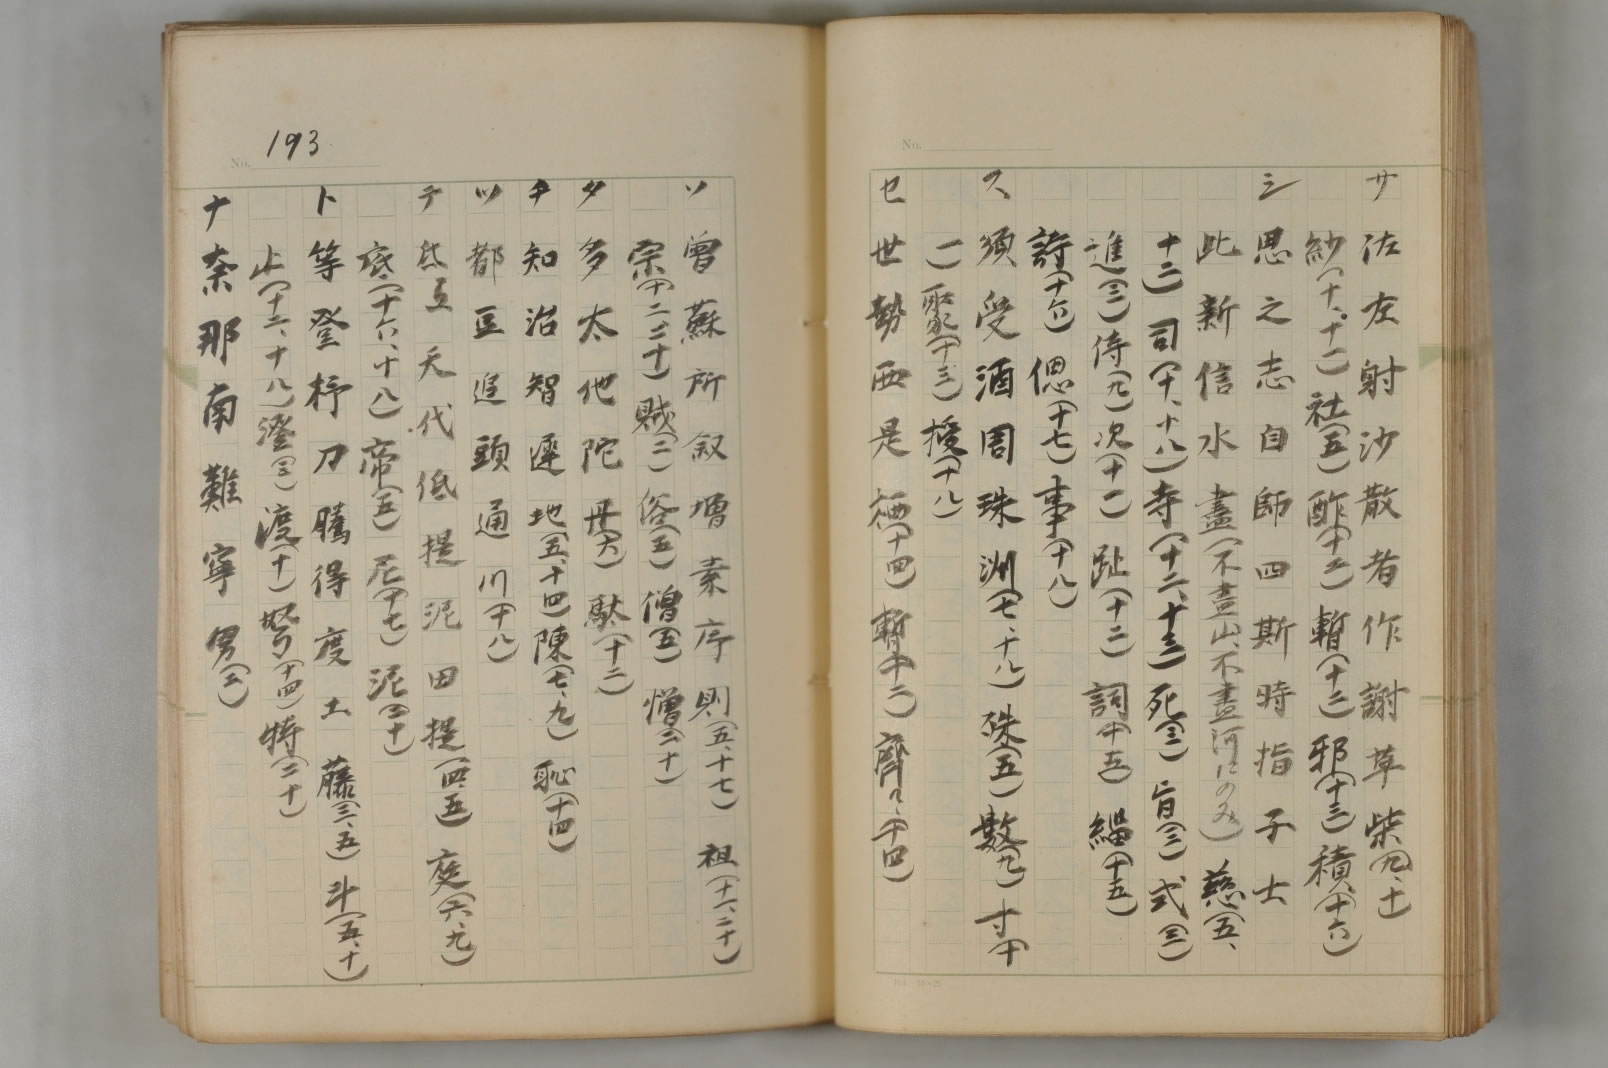 No.
サ 佐左射沙散者作謝草柴(九、十一
紗(十、十一)社(五)酢(十二)暫(十二)邪(十三)積(十六)
シ 思之志自師四斯時指子士
此新信水盡(不盡山、不盡河にのみ)慈(五、
十二)司(十、十八)寺(十二、十三)死(三)旨(三)式(三)
進(三)侍(九)次(十一)趾(十二)詞(十五)緇(十五)
詩(十六)偲(十七)事(十八)
ス 須受酒周珠洲(七、十八)殊(五)数(九)寸(十
一)聚(十三)授(十八)
セ 世勢西是栖(十四)暫(十二)齊(十四)
193
No.
ソ 曾蘇所叙増素序則(五、十七)祖(十一、二十)
宗(十二、二十)賊(二)俗(五)僧(五)憎(二十)
タ 多太他陀丹(六)駄(十二)
チ 知治智遲地(五、十四)陳(七、九)恥(十四)
ツ 都豆追頭通川(十八)
テ 底弖天代低提泥田提(四、五)庭(六、九)
底(十六、十八)帝(五)尼(十七)泥(二十)
ト 等登杼刀騰得度土藤(三、五)斗(五、十)
止(十二、十八)澄(三)渡(十)怒(十四)特(二十)
ナ 奈那南難寧男(二)